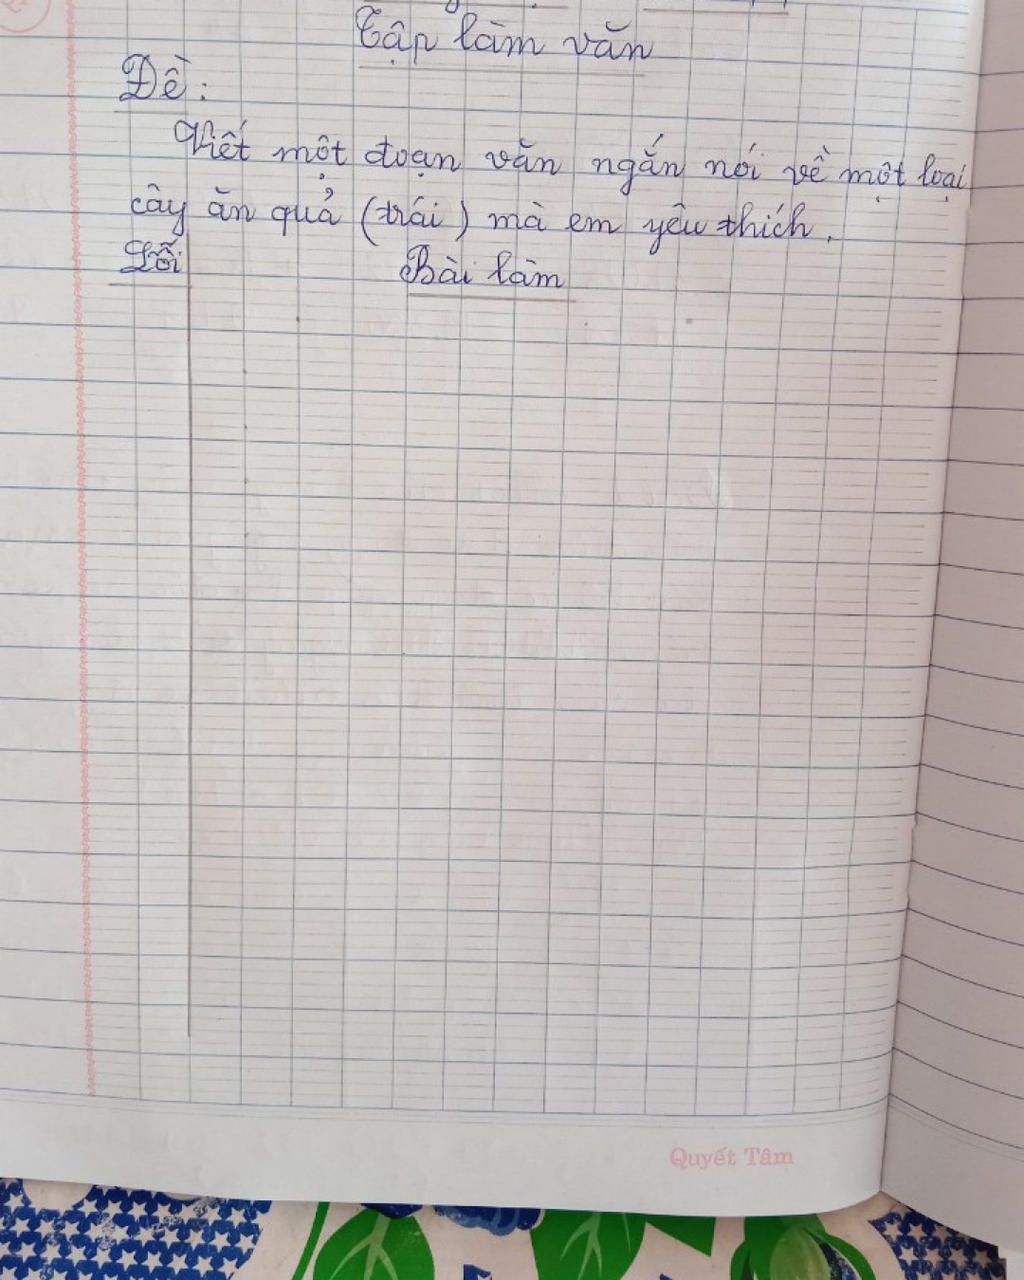 Tập làm văn
Đề:
Viết một đoạn văn ngắn nói về một loại
cây ăn quả (trái) mà em yêu thích.
Lỗi Bài làm
Quyết Tâm